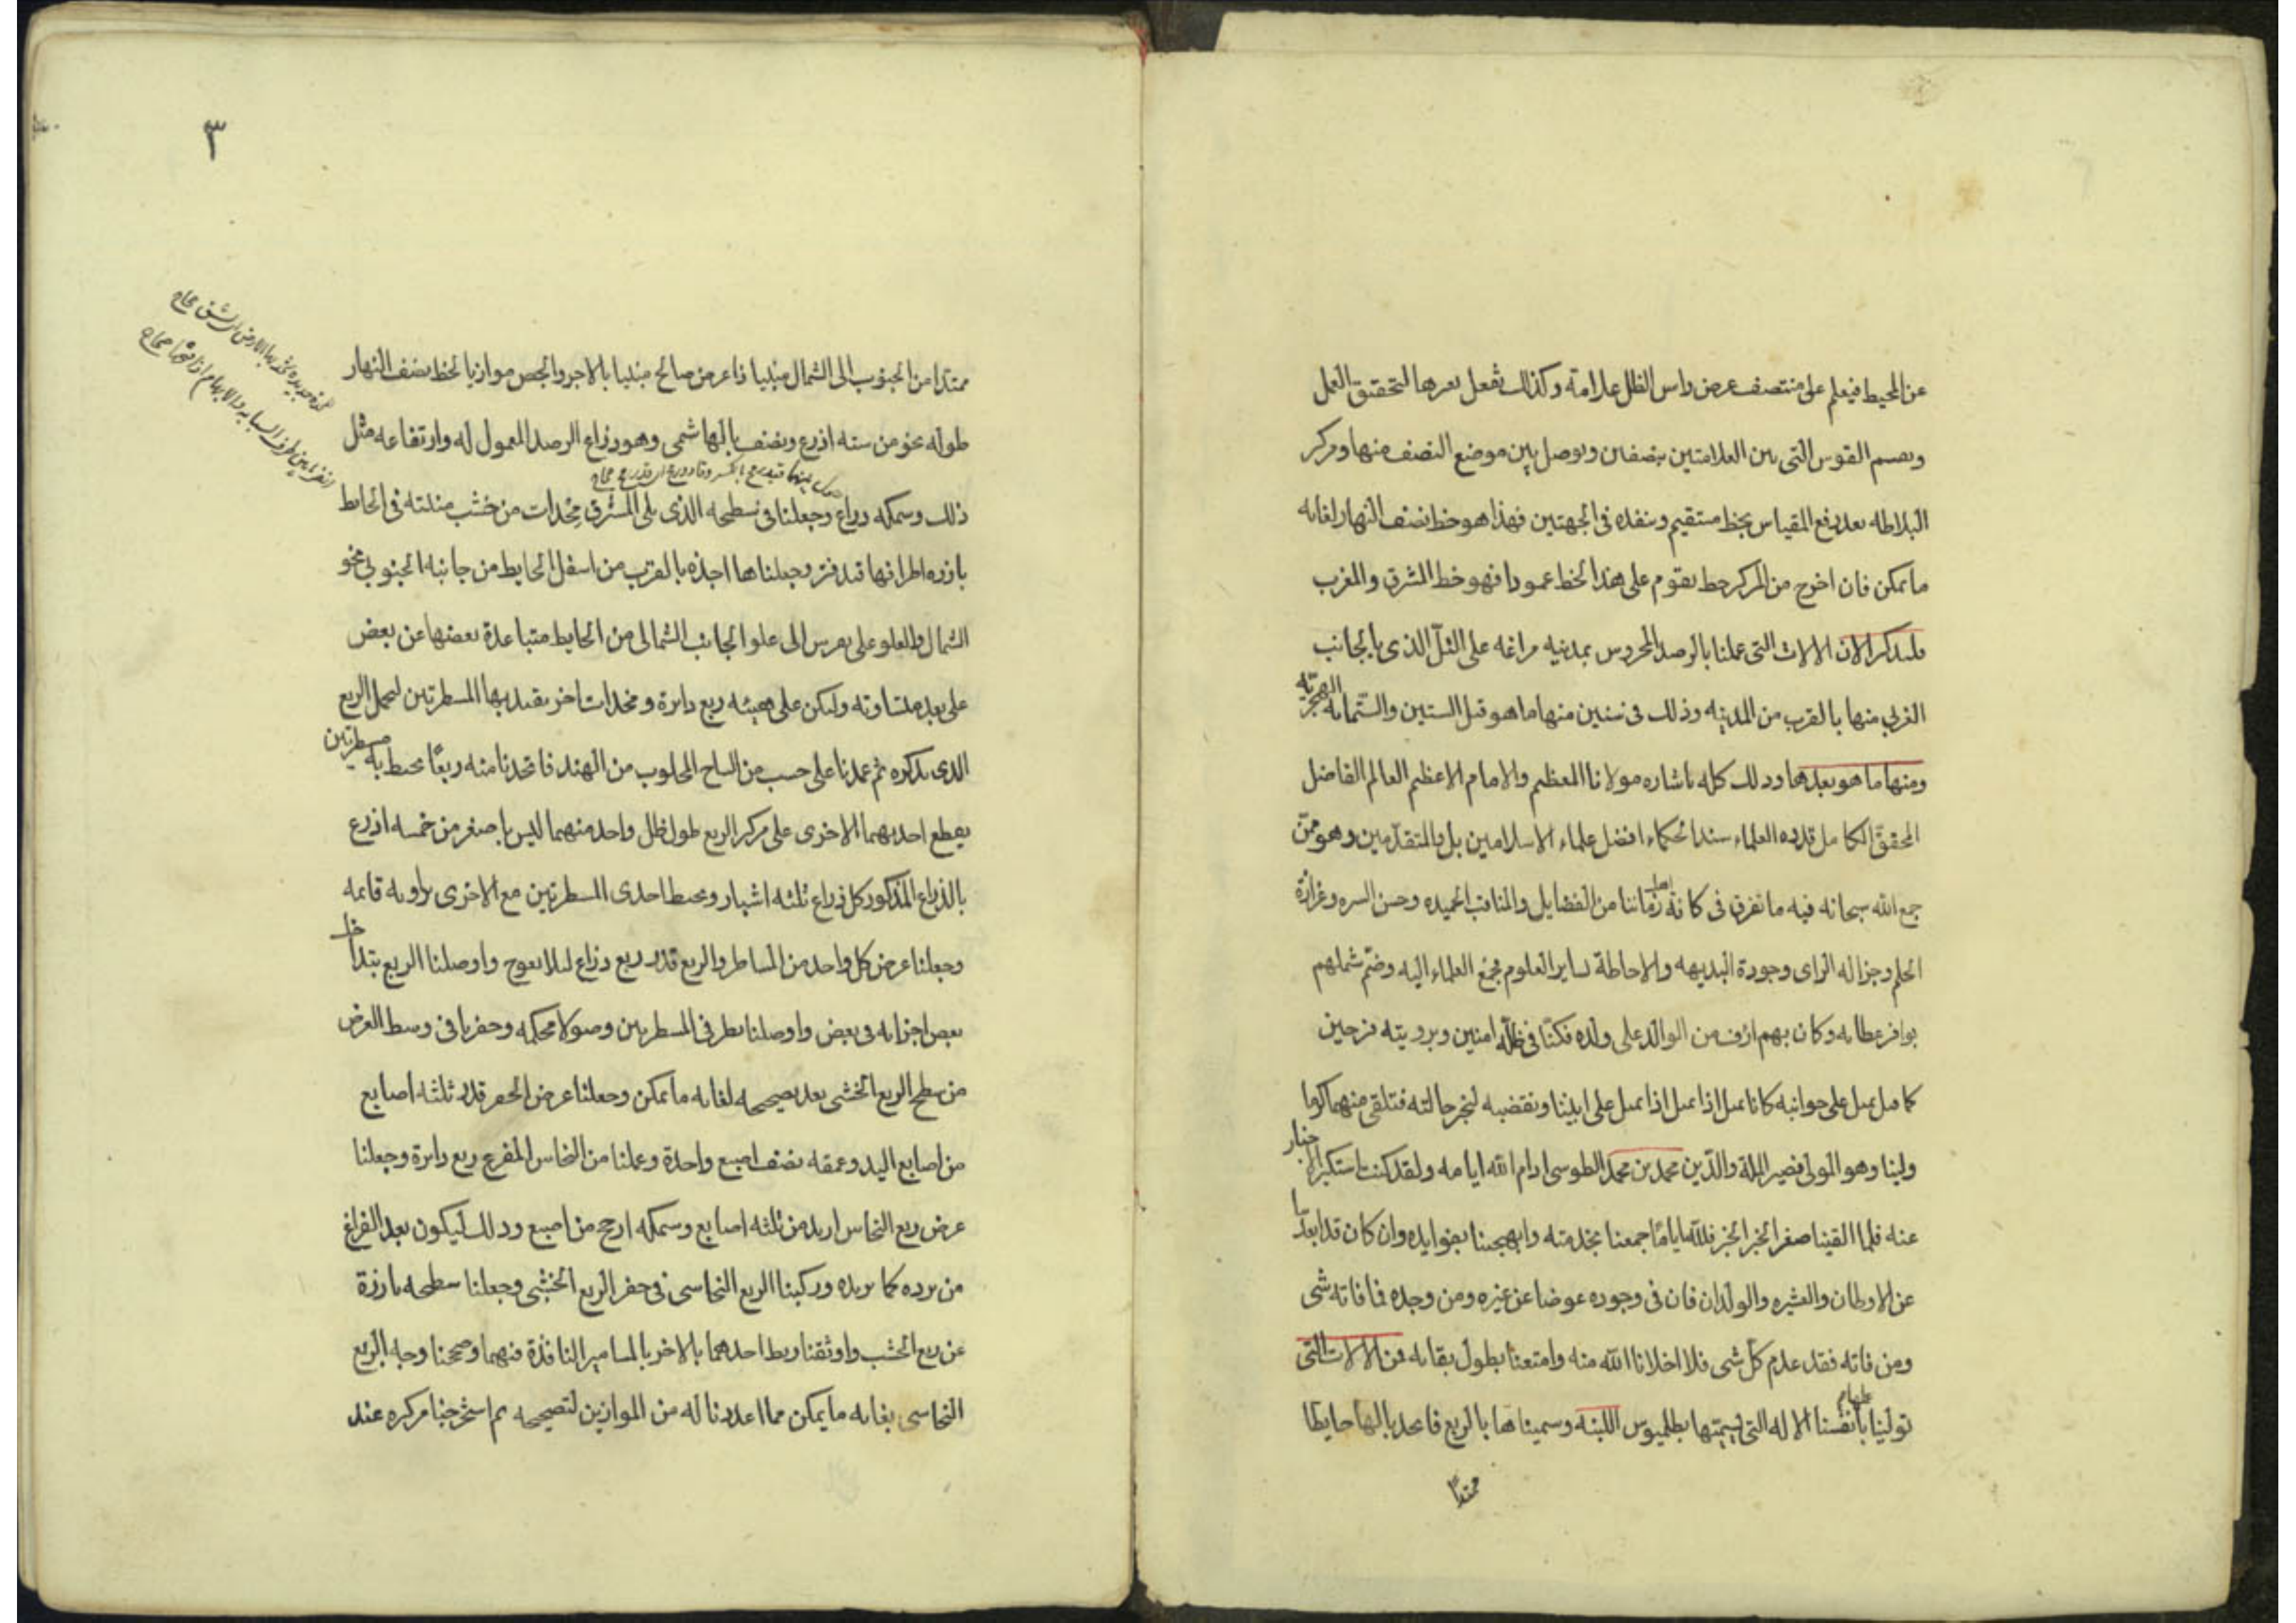 عن المحيط فيعلم على منتصف عرض راس الظل علامة وكذلك تفعل بعرها لتحقيق العمل
ويقسم القوس التى بين العلامتين بنصفين ويوصل بين موضع النصف منها ومركز
البلاطه بعد رفع المقياس بخط مستقيم وينفذه فى الجهتين فهذا هو خط نصف النهار لغايه
ما يمكن فان اخرج من المركز خط يقوم على هذا الخط عمودا فهو خط المشرق والمغرب
فلنذكر الان الالات التى عملنا بالرصد المحروس بمدينه مراغه على التلّ الذى بالجانب
الغربي منها بالقرب من المدينه وذلك فى سنين منها ما هو قبل الستين والستمايه الهجريّه
ومنها ما هو بعدها وذلك كله باشاره مولانا المعظم والامام الاعظم العالم الفاضل
المحقق الكامل قدوه العلماء سند الحكماء افضل علماء الاسلاميين بل والمتقدّمين وهو ممّن
جمع الله سبحانه فيه ما تفرق فى كافة اهل زماننا من الفضايل والمناقب الحميده وحسن السيره وغزارة
الحلم وجزاله الراى وجودة البديهه والاحاطة بساير العلوم فجمع العلماء اليه وضمّ شملهم
بوافر عطايه وكان بهم ارؤف من الوالد على ولده فكنّا فى ظلّه امنين وبرويته فرحين
كما قيل نميل على جوانبه كانا نميل اذا نميل على ابينا ونغضبه لنخبر حالته فنلقى منهما كرما
ولينا وهو المولى نصير الملة والدّين محمد بن محمد الطوسى ادام الله ايامه ولقد كنت استكبر الاخبار
عنه فلما التقينا صغر الخبر الخبر فللّه ايامًا جمعنا بخدمته وابهجتنا بفوايده وان كان قد ابعدنا
عن الاوطان والعشيره والولدان فان فى وجوده عوضا عن غيره ومن وجده فما فاته شى
ومن فاته فقد عدم كل شى فلا اخلانا الله منه وامتعنا بطول بقايه فمن الالات التى
تولينا عملها بانفسنا الاله التى يسميها بطلميوس اللبنه وسميناها بالربع فاتخذنا لها حايطا
ممتدا
٣
ممتدا من الجنوب الى الشمال مبنيا بالاجر والجص موازيا لخط نصف النهار
طوله نحو من سته اذرع ونصف بالهاشمى وهو ذراع الرصد المعمول له وارتفاعه مثل
ذلك وسمكه ذراع وجعلنا فى سطحه الذى يلى المشرق مخدات من خشب مثبته فى الحايط
بارزه اطرافها قيد فتر وجعلناها اخذه بالقرب من اسفل الحايط من جانبه الجنوبي نحو
الشمال والعلو على تقويس الى علو الجانب الشمالى من الحايط متباعدة بعضها عن بعض
على بعد متساويه ولكن على هيئه ربع دايرة ومخدات اخر نقيد بها المسطرتين لحمل الربع
الذى نذكره ثم عمدنا على خشب من الساج المجلوب من الهند فاتخذنا منه ربعًا يحيط به مسطرتين
يقطع احديهما الاخرى على مركز الربع طول كل واحد منهما ليس باصغر من خمسه اذرع
بالذراع المذكور كل ذراع ثلثه اشبار ويحيط احدى المسطرتين مع الاخرى بزاويه قايمه
وجعلنا عرض كل واحد من المساطر والربع قدر ربع ذراع لئلا يعوج واوصلنا الربع بتداخل
بعض اجزايه فى بعض واوصلنا بطرفى المسطرتين وصولا محكمه وحفرنا فى وسط العرض
من سطح الربع الخشبى بعد تصحيحه لغايه ما يمكن وجعلنا عرض الحفر قدر ثلثه اصابع
من اصابع اليد وعمقه نصف اصبع واحدة وعملنا من النحاس المفرع ربع دايرة وجعلنا
عرض ربع النحاس ازيد من ثلثه اصابع وسمكه ارجح من اصبع وذلك ليكون بعد الفراغ
من برده كما نريده وركبنا الربع النحاسى فى حفر الربع الخشبى وجعلنا سطحه بارزة
عن ربع الخشب واوثقنا ربط احدهما بالاخر بالمسامير النافذة فيهما وصححنا وجه الربع
النحاسى بغايه ما يمكن مما اعددنا له من الموازين لتصحيحه ثم استخرجنا مركزه عند